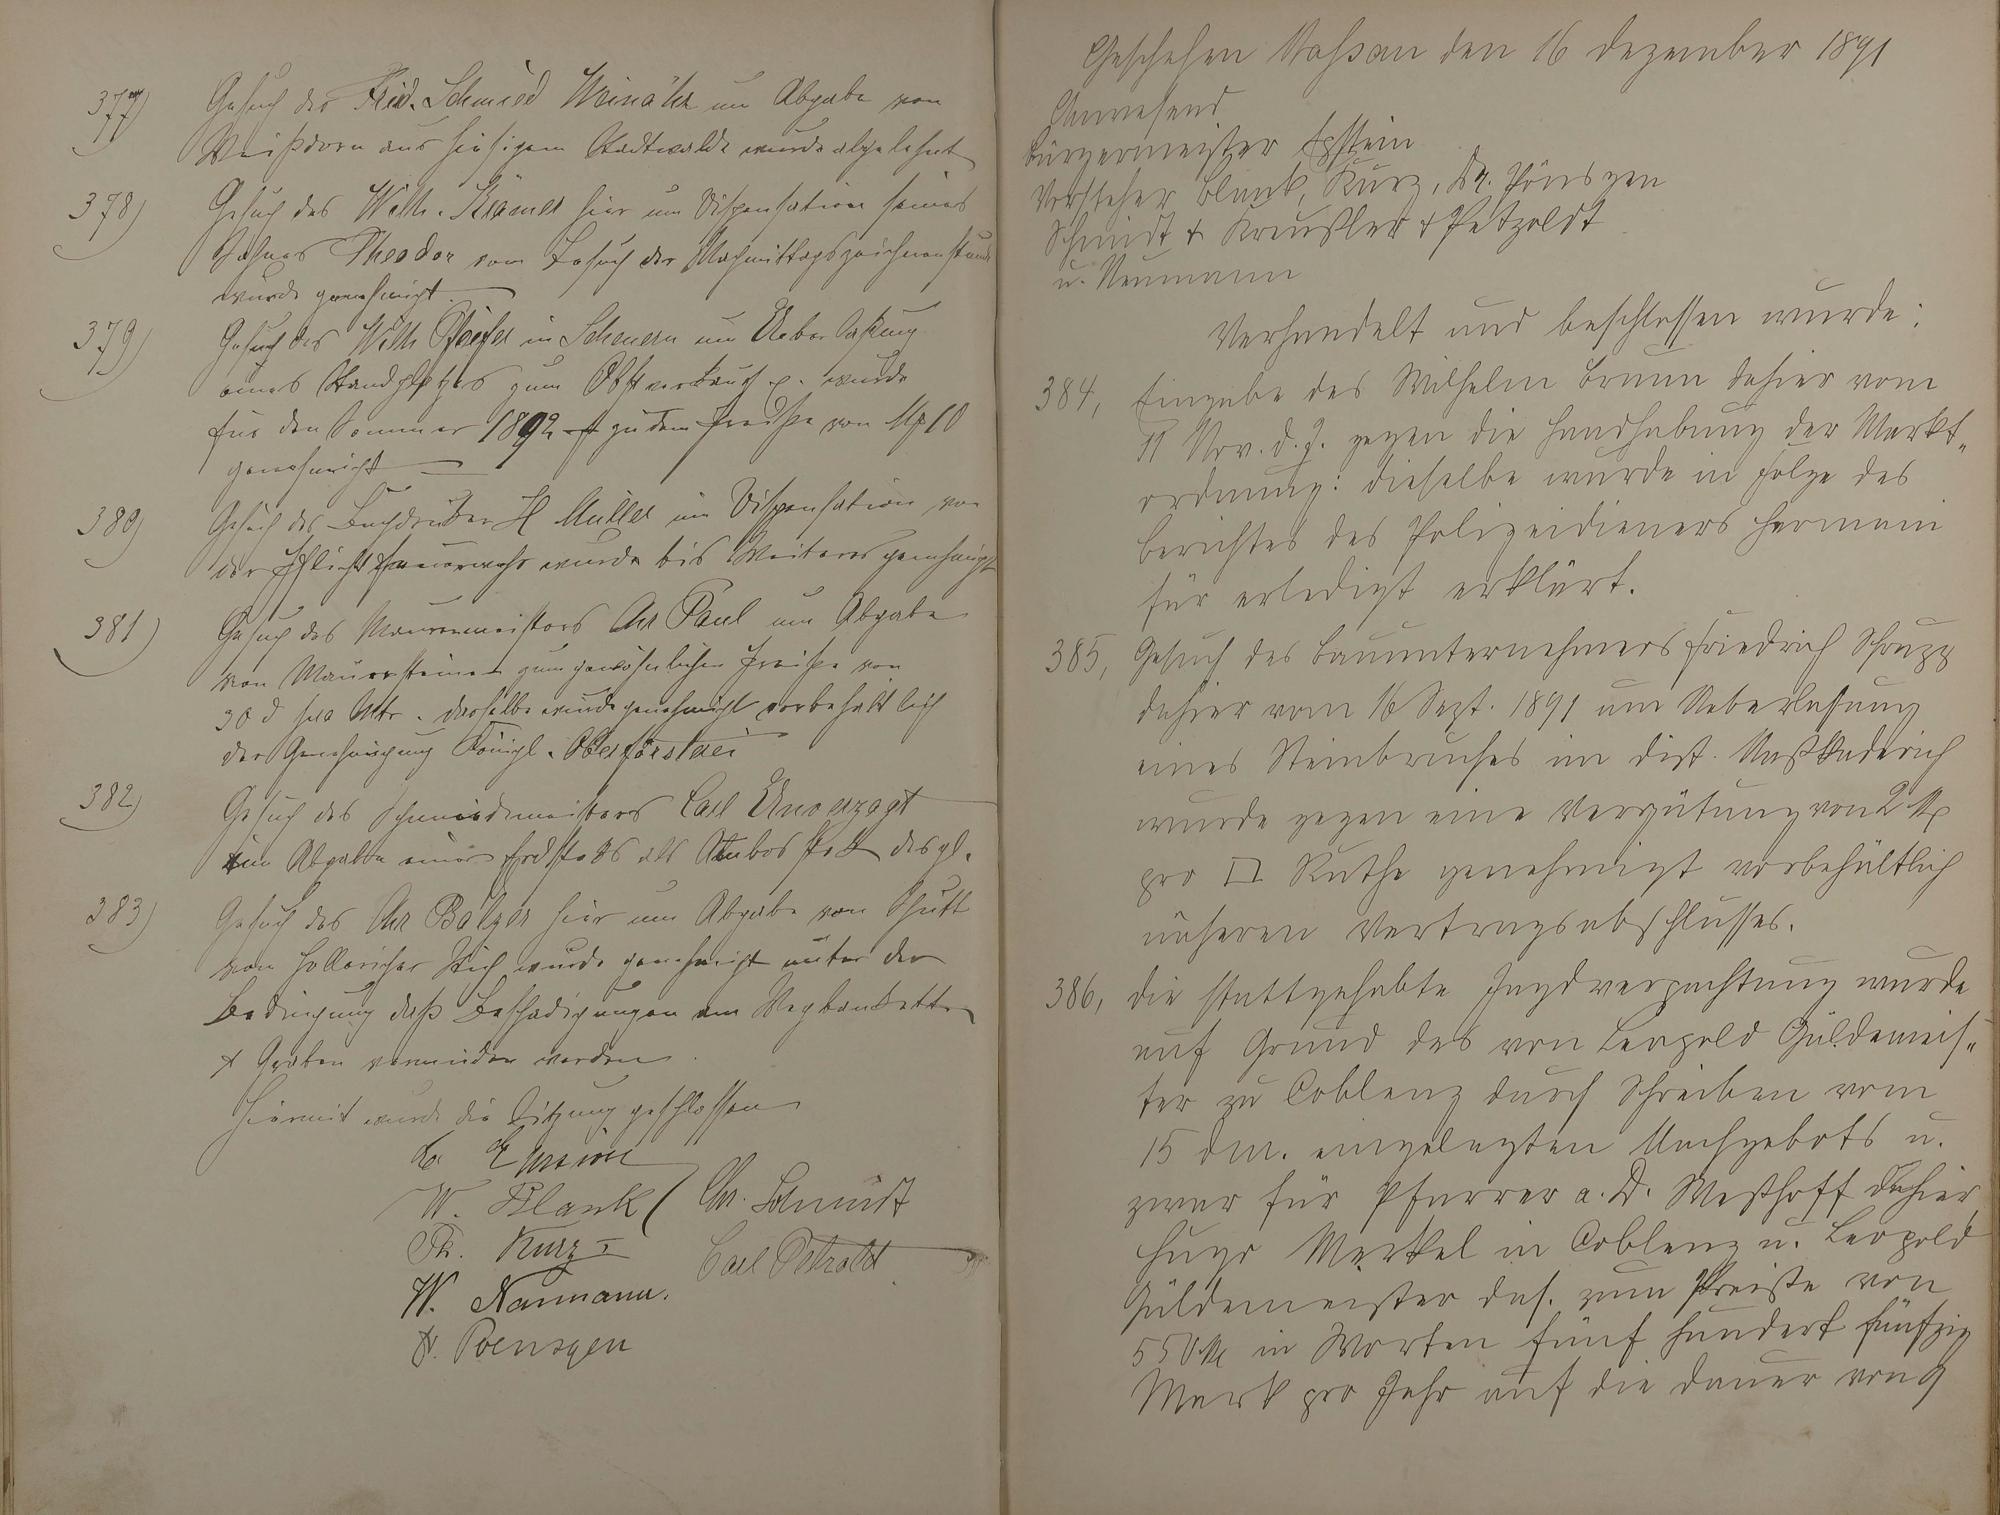 377) Gesuch des Fried. Schmied Weinähr um Abgabe von
Weißdorn aus hiesigem Stadtwalde wurde abgelehnt
378) Gesuch des Wilh. Krämer hier um Dispensation seines
Sohnes Theodor vom Besuch der Nachmittagszeichnenstunde
wurde genehmigt.
379) Gesuch des Wilh Pfeifer in Scheuern um Ueberlaßung
eines Standplatzes zum Obstverkauf p. wurde
für den Sommer 1892 zu dem Preiße von M 10
genehmigt
380) Gesuch des Buchdrucker H Müller um Dispensation von
der Pflichtfeuerwehr wurde bis Weiteres genehmigt
381) Gesuch des Maurermeisters Chr Paul um Abgabe
von Mauersteinen zum gewöhnlichen Preiße von
30 d pro Mtr. dasselbe wurde genehmigt vorbehaltlich
der Genehmigung Königl. Oberförsterei
382) Gesuch des Schmiedemeisters Carl Unverzagt
um Abgabe eines als Ambos desgl.
383) Gesuch des Chr Balzer hier um Abgabe von Schutt
vom Hollericher wurde genehmigt unter der
Bedingung daß Beschädigungen am Wegbankette
& Graben vermieden werden.
Hiermit wurde die Sitzung geschlossen
W. Blank Chr. Schmidt
Kurz I Carl Petzoldt
W. Naumann.
Dr. Poensgen
Geschehen Naßau den 16 Dezember 1891
Anwesend
Bürgermeister Epstein
Vorsteher Blank, Kurz, Dr. Pönsgen
Schmidt & Kreußler & Petzoldt
u. Neumann
Verhandelt und beschlossen wurde:
384, Eingabe des Wilhelm Bruun dahier vom
11 Nov. d. J. gegen die Handhabung der Markt„
ordnung: dieselbe wurde in Folge des
Berichtes des Polizeidieners Hermani
für erledigt erklärt.
385, Gesuch des Bauunternehmers Friedrich Schrupp
dahier vom 16 Sept. 1891 um Ueberlasung
eines Steinbruches im Dist.
wurde gegen eine Vergütung von 2 M
pro □ Ruthe genehmigt vorbehältlich
näheren Vertragsabschlusses.
386, Die stattgehabte Jagdverpachtung wurde
auf Grund des von Leopold Güldemeis„
ter zu Coblenz durch Schreiben vom
15 dm. eingelegten Nachgebots u.
zwar für Pfarrer a. D. Westhoff dahier,
Hugo Merkel in Coblenz u. Leopold
Güldemeister das. zum Preiße von
550 M in Worten fünf hundert fünfzig
Mark pro Jahr auf die Dauer von 9